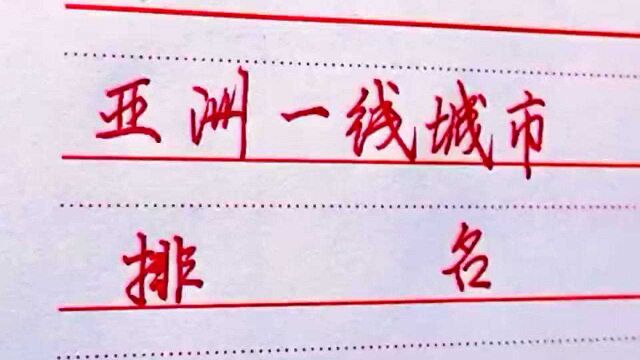 亚洲一线城市
排 名